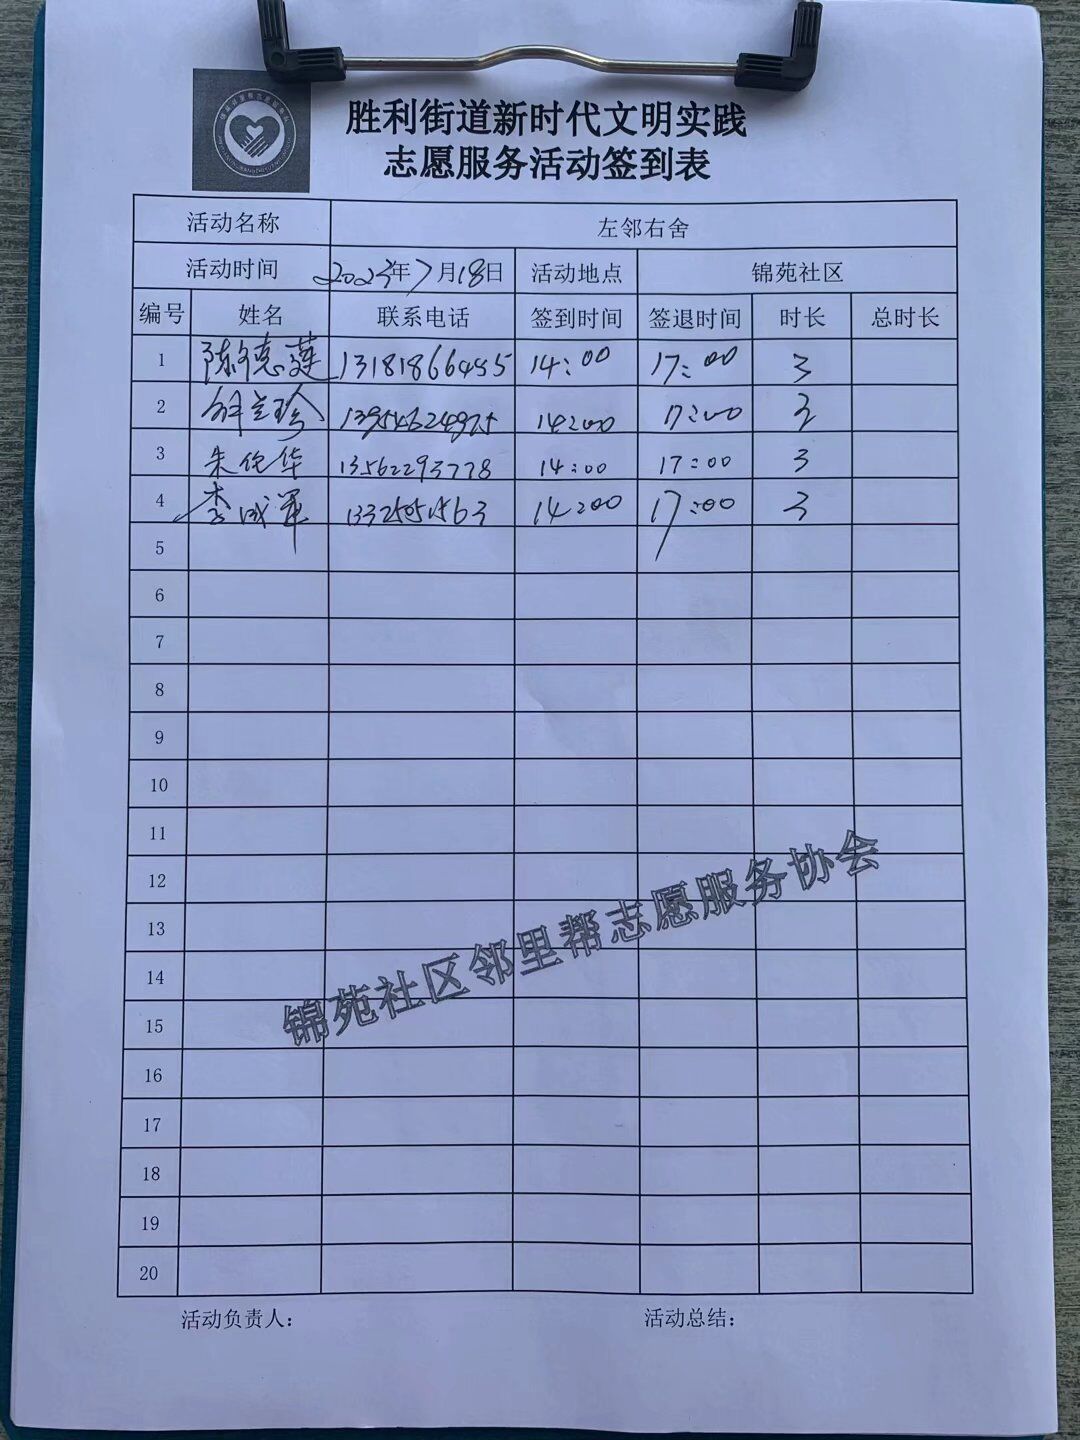 胜利街道新时代文明实践
志愿服务活动签到表
活动名称 左邻右舍
活动时间 2023年7月18日 活动地点 锦苑社区
编号 姓名 联系电话 签到时间 签退时间 时长 总时长
1 陈德莲 13181866455 14:00 17:00 3
2 珍 13954624975 14:00 17:00 3
3 朱伦华 13562293778 14:00 17:00 3
4 李成军 14:00 17:00 3
5
6
7
8
9
10
11
12
13
14
15
16
17
18
19
20
锦苑社区邻里帮志愿服务协会
活动负责人： 活动总结：